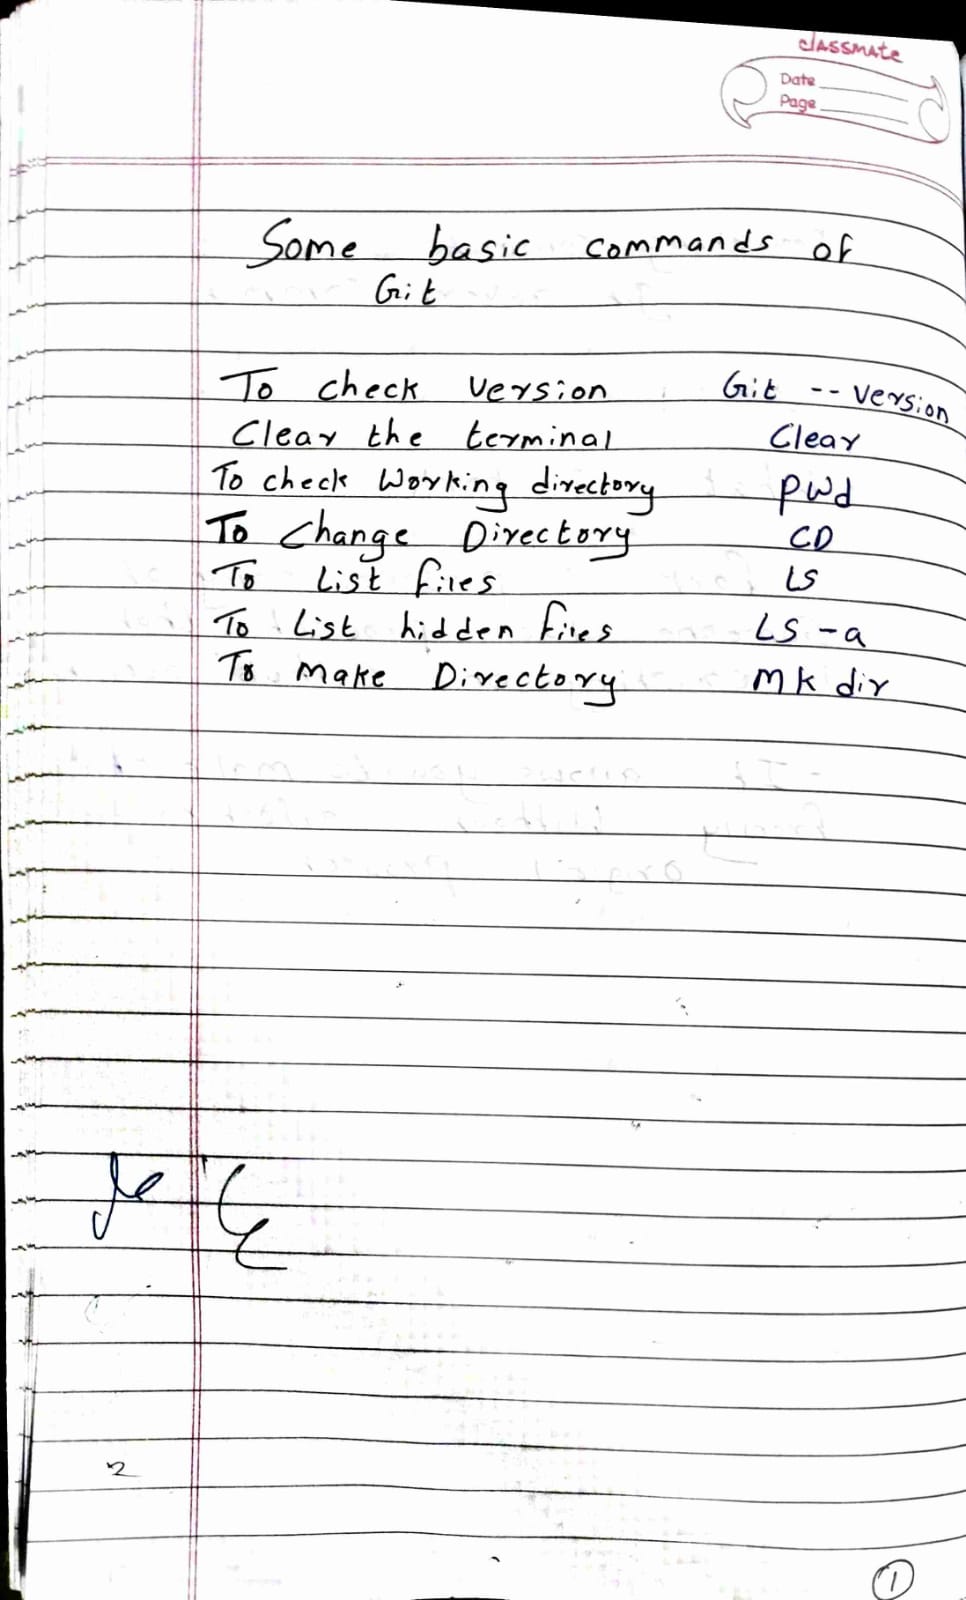 classmate
Date
Page
Some basic commands of
Git
To check version Git -- version
Clear the terminal Clear
To check Working directory pwd
To Change Directory CD
To List files LS
To List hidden files LS -a
To Make Directory Mk dir
2
1